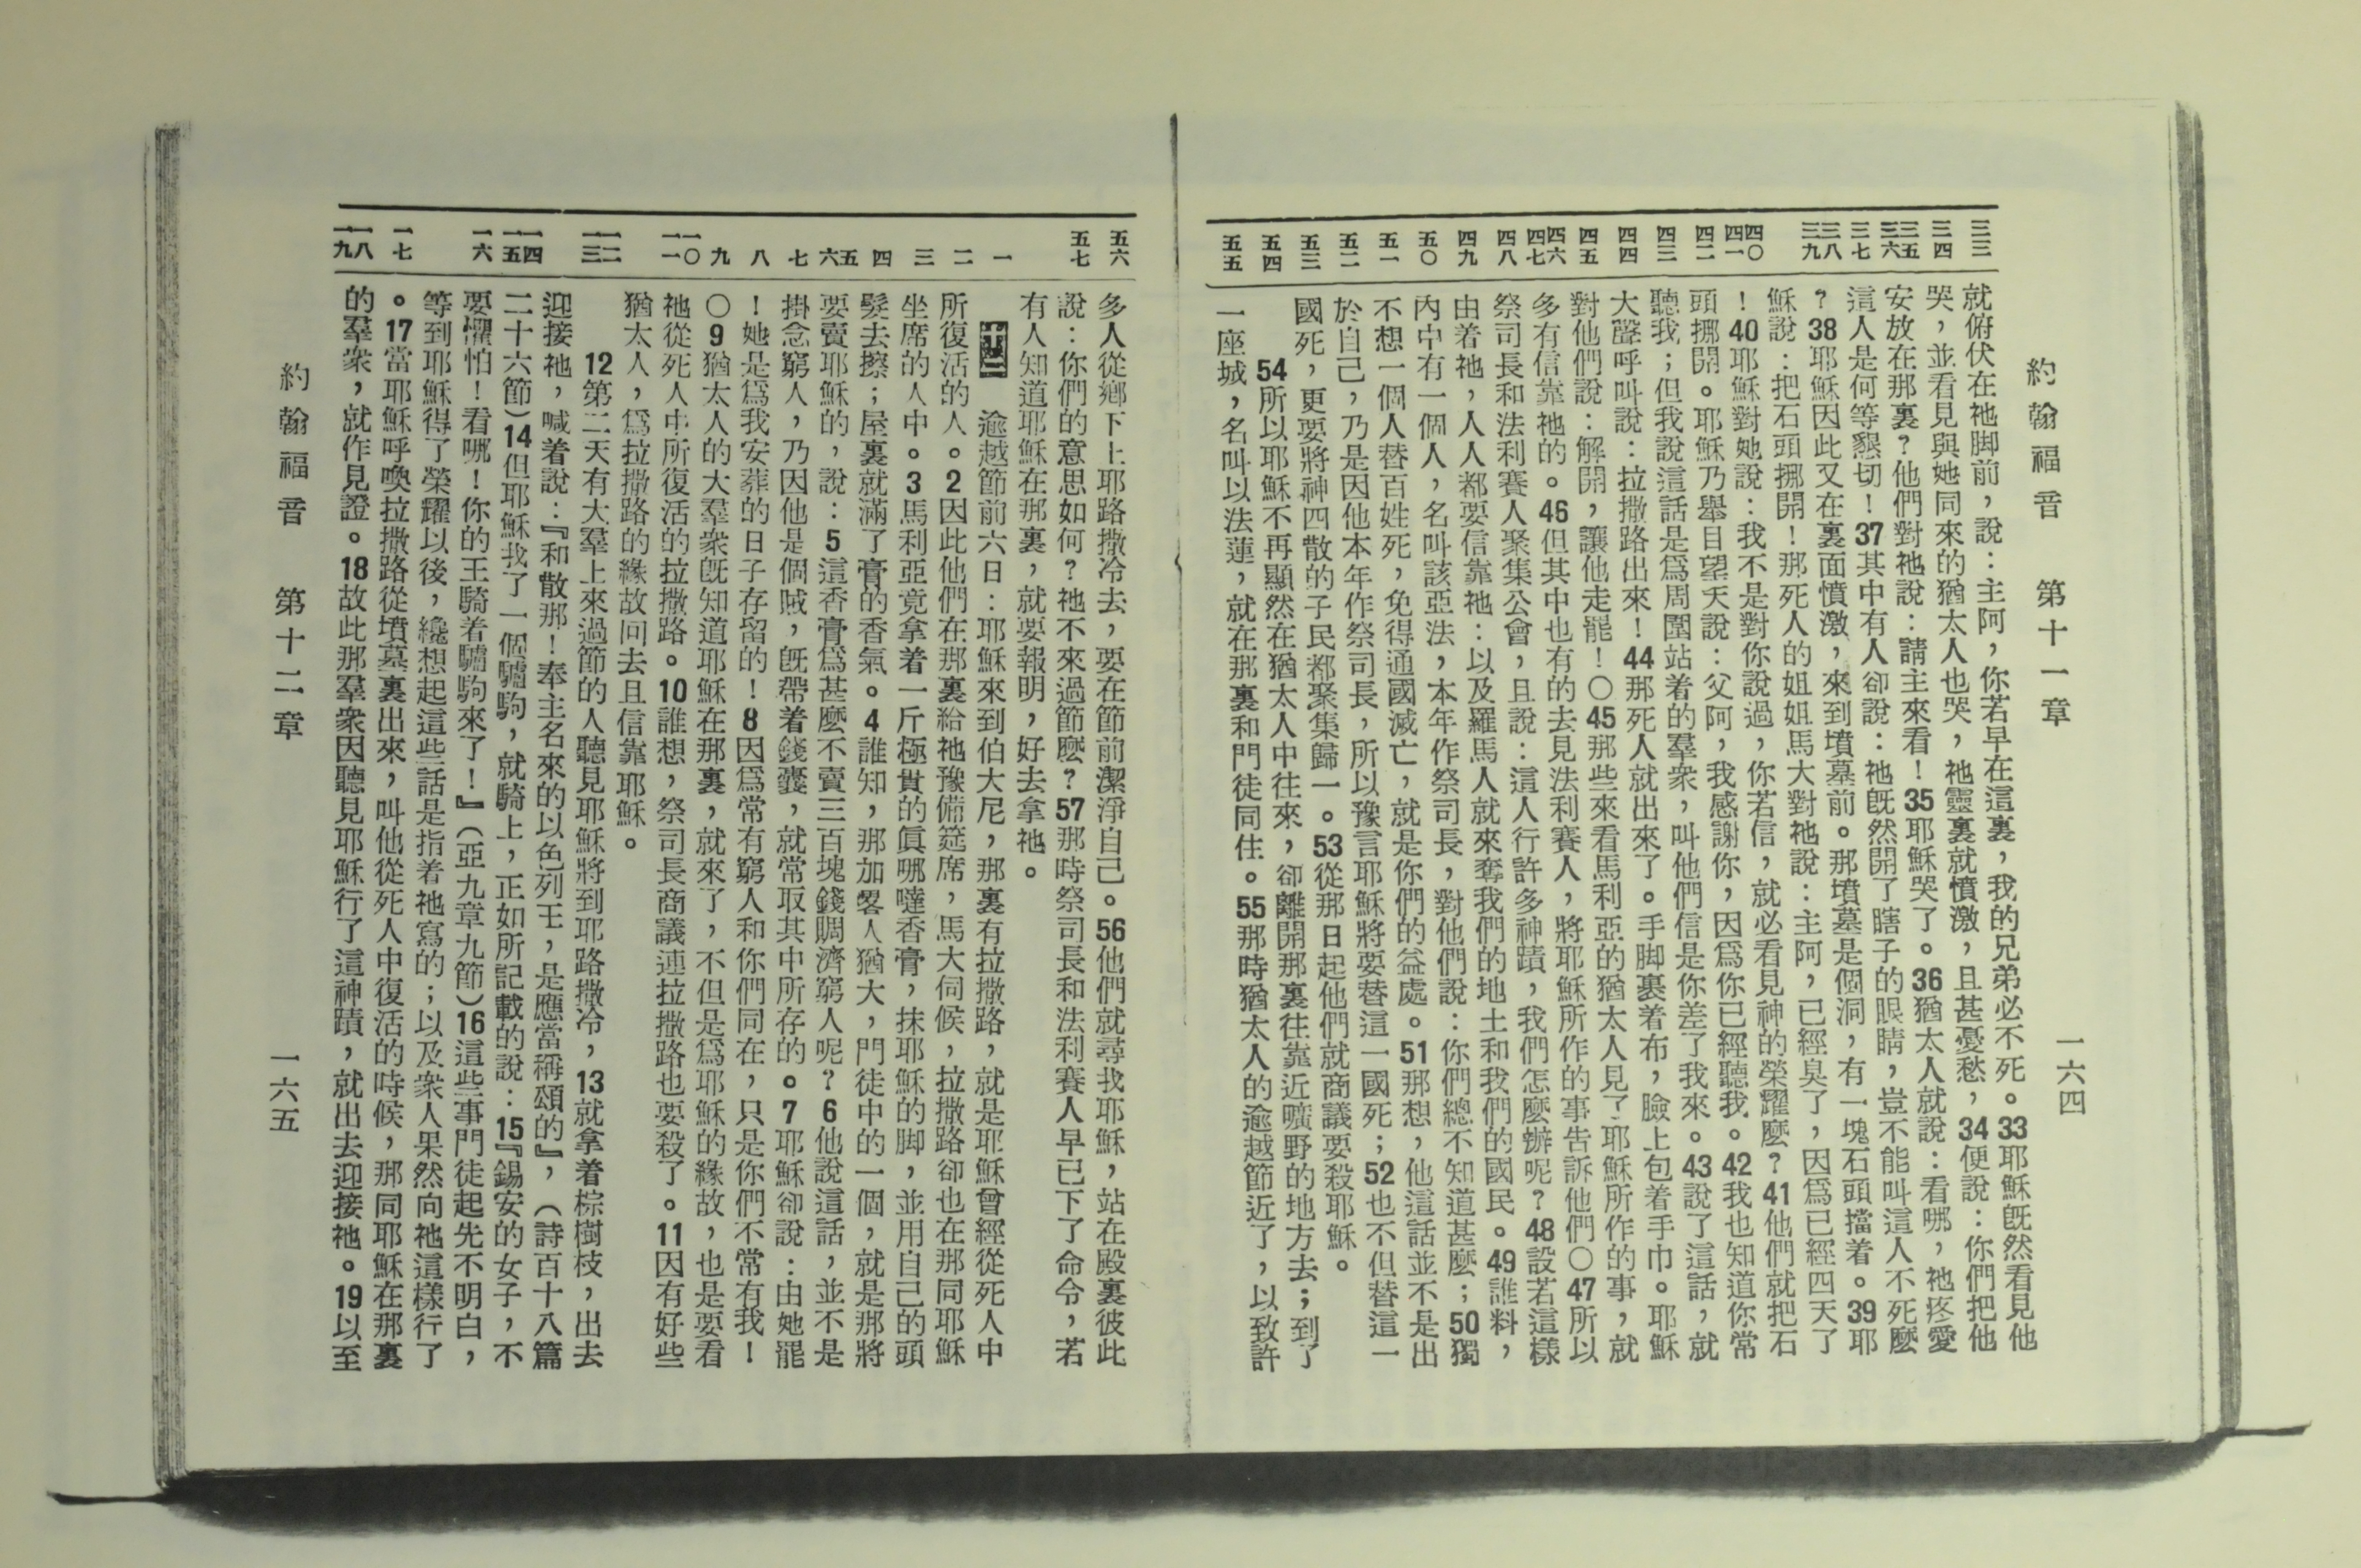 約翰福音 第十一章 一六四
三三 三四 三五 三六 三七 三八 三九 四〇 四一 四二 四三 四四 四五 四六 四七 四八 四九 五〇 五一 五二 五三 五四 五五
就俯伏在祂脚前，說：主阿，你若早在這裏，我的兄弟必不死。33耶穌旣然看見他
哭，並看見與她同來的猶太人也哭，祂靈裏就憤激，且甚憂愁，34便說：你們把他
安放在那裏？他們對祂說：請主來看！35耶穌哭了。36猶太人就說：看哪，祂疼愛
這人是何等懇切！37其中有人卻說：祂旣然開了瞎子的眼睛，豈不能叫這人不死麽
？38耶穌因此又在裏面憤激，來到墳墓前。那墳墓是個洞，有一塊石頭擋着。39耶
穌說：把石頭挪開！那死人的姐姐馬大對祂說：主阿，已經臭了，因爲已經四天了
！40耶穌對她說：我不是對你說過，你若信，就必看見神的榮耀麽？41他們就把石
頭挪開。耶穌乃舉目望天說：父阿，我感謝你，因爲你已經聽我。42我也知道你常
聽我；但我說這話是爲周圍站着的羣衆，叫他們信是你差了我來。43說了這話，就
大聲呼叫說：拉撒路出來！44那死人就出來了。手脚裹着布，臉上包着手巾。耶穌
對他們說：解開，讓他走罷！〇45那些來看馬利亞的猶太人見了耶穌所作的事，就
多有信靠祂的。46但其中也有的去見法利賽人，將耶穌所作的事吿訴他們〇47所以
祭司長和法利賽人聚集公會，且說：這人行許多神蹟，我們怎麽辦呢？48設若這樣
由着祂，人人都要信靠祂：以及羅馬人就來奪我們的地土和我們的國民。49誰料，
內中有一個人，名叫該亞法，本年作祭司長，對他們說：你們總不知道甚麽；50獨
不想一個人替百姓死，免得通國滅亡，就是你們的益處。51那想，他這話並不是出
於自己，乃是因他本年作祭司長，所以豫言耶穌將要替這一國死；52也不但替這一
國死，更要將神四散的子民都聚集歸一。53從那日起他們就商議要殺耶穌。
54所以耶穌不再顯然在猶太人中往來，卻離開那裏往靠近曠野的地方去；到了
一座城，名叫以法蓮，就在那裏和門徒同住。55那時猶太人的逾越節近了，以致許
五六 五七 一 二 三 四 五 六 七 八 九 一〇 一一 一二 一三 一四 一五 一六 一七 一八 一九
多人從鄕下上耶路撒冷去，要在節前潔淨自己。56他們就尋找耶穌，站在殿裏彼此
說：你們的意思如何？祂不來過節麽？57那時祭司長和法利賽人早已下了命令，若
有人知道耶穌在那裏，就要報明，好去拿祂。
十二 逾越節前六日：耶穌來到伯大尼，那裏有拉撒路，就是耶穌曾經從死人中
所復活的人。2因此他們在那裏給祂豫備筵席，馬大伺候，拉撒路卻也在那同耶穌
坐席的人中。3馬利亞竟拿着一斤極貴的眞哪噠香膏，抹耶穌的脚，並用自己的頭
髮去擦；屋裏就滿了膏的香氣。4誰知，那加畧人猶大，門徒中的一個，就是那將
要賣耶穌的，說：5這香膏爲甚麽不賣三百塊錢賙濟窮人呢？6他說這話，並不是
掛念窮人，乃因他是個賊，旣帶着錢囊，就常取其中所存的。7耶穌卻說：由她罷
！她是爲我安葬的日子存留的！8因爲常有窮人和你們同在，只是你們不常有我！
〇9猶太人的大羣衆旣知道耶穌在那裏，就來了，不但是爲耶穌的緣故，也是要看
祂從死人中所復活的拉撒路。10誰想，祭司長商議連拉撒路也要殺了。11因有好些
猶太人，爲拉撒路的緣故回去且信靠耶穌。
12第二天有大羣上來過節的人聽見耶穌將到耶路撒冷，13就拿着棕樹枝，出去
迎接祂，喊着說：『和散那！奉主名來的以色列王，是應當稱頌的』，（詩百十八篇
二十六節）14但耶穌找了一個驢駒，就騎上，正如所記載的說：15『錫安的女子，不
要懼怕！看哪！你的王騎着驢駒來了！』（亞九章九節）16這些事門徒起先不明白，
等到耶穌得了榮耀以後，纔想起這些話是指着祂寫的；以及衆人果然向祂這樣行了
。17當耶穌呼喚拉撒路從墳墓裏出來，叫他從死人中復活的時候，那同耶穌在那裏
的羣衆，就作見證。18故此那羣衆因聽見耶穌行了這神蹟，就出去迎接祂。19以至
約翰福音 第十二章 一六五